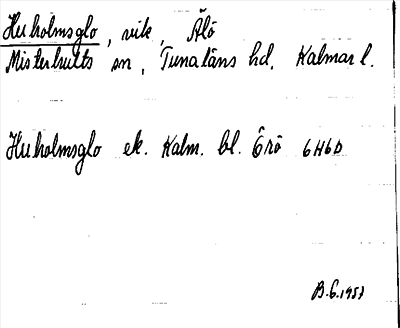 Huholmsglo, vik, Älö
Misterhults sn, Tunaläns hd, Kalmar l.
Huholmsglo ek. Kalm. bl. Örö 6H6D
B.G. 1957